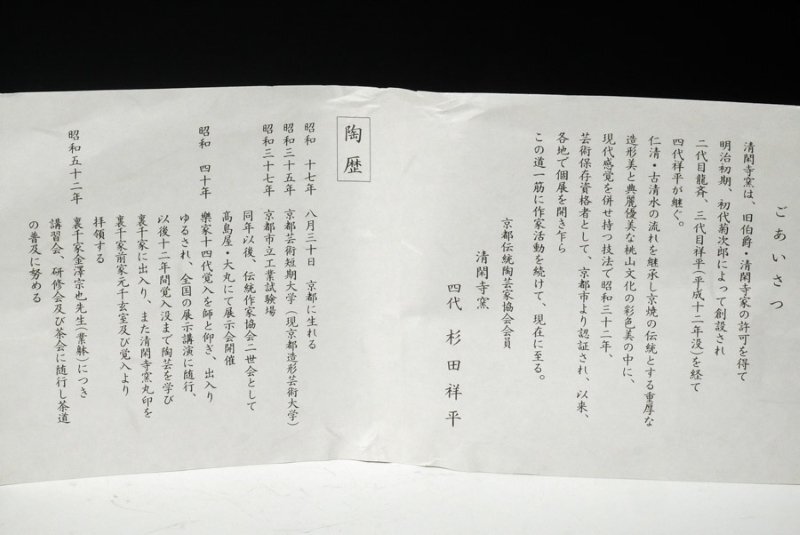 ごあいさつ
清閑寺窯は、旧伯爵・清閑寺家の許可を得て
明治初期、初代菊次郎によって創設され
二代目龍斉、三代目祥平(平成十二年没)を経て
四代祥平が継ぐ。
仁清・古清水の流れを継承し京焼の伝統とする重厚な
造形美と典麗優美な桃山文化の彩色美の中に、
現代感覚を併せ持つ技法で昭和三十二年、
芸術保存資格者として、京都市より認証され、以来、
各地で個展を開き乍ら
この道一筋に作家活動を続けて、現在に至る。
京都伝統陶芸家協会会員
清閑寺窯
四代 杉田祥平
陶歴
昭和 十七年 八月三十日 京都に生れる
昭和三十五年 京都芸術短期大学(現京都造形芸術大学)
昭和三十七年 京都市立工業試験場
同年以後、伝統作家協会二世会として
高島屋・大丸にて展示会開催
昭和 四十年 樂家十四代覚入を師と仰ぎ、出入り
ゆるされ、全国の展示講演に随行、
以後十二年間覚入没まで陶芸を学び
裏千家に出入り、また清閑寺窯丸印を
裏千家前家元千玄室及び覚入より
拝領する
昭和五十二年 裏千家金澤宗也先生(業躰)につき
講習会、研修会及び茶会に随行し茶道
の普及に努める